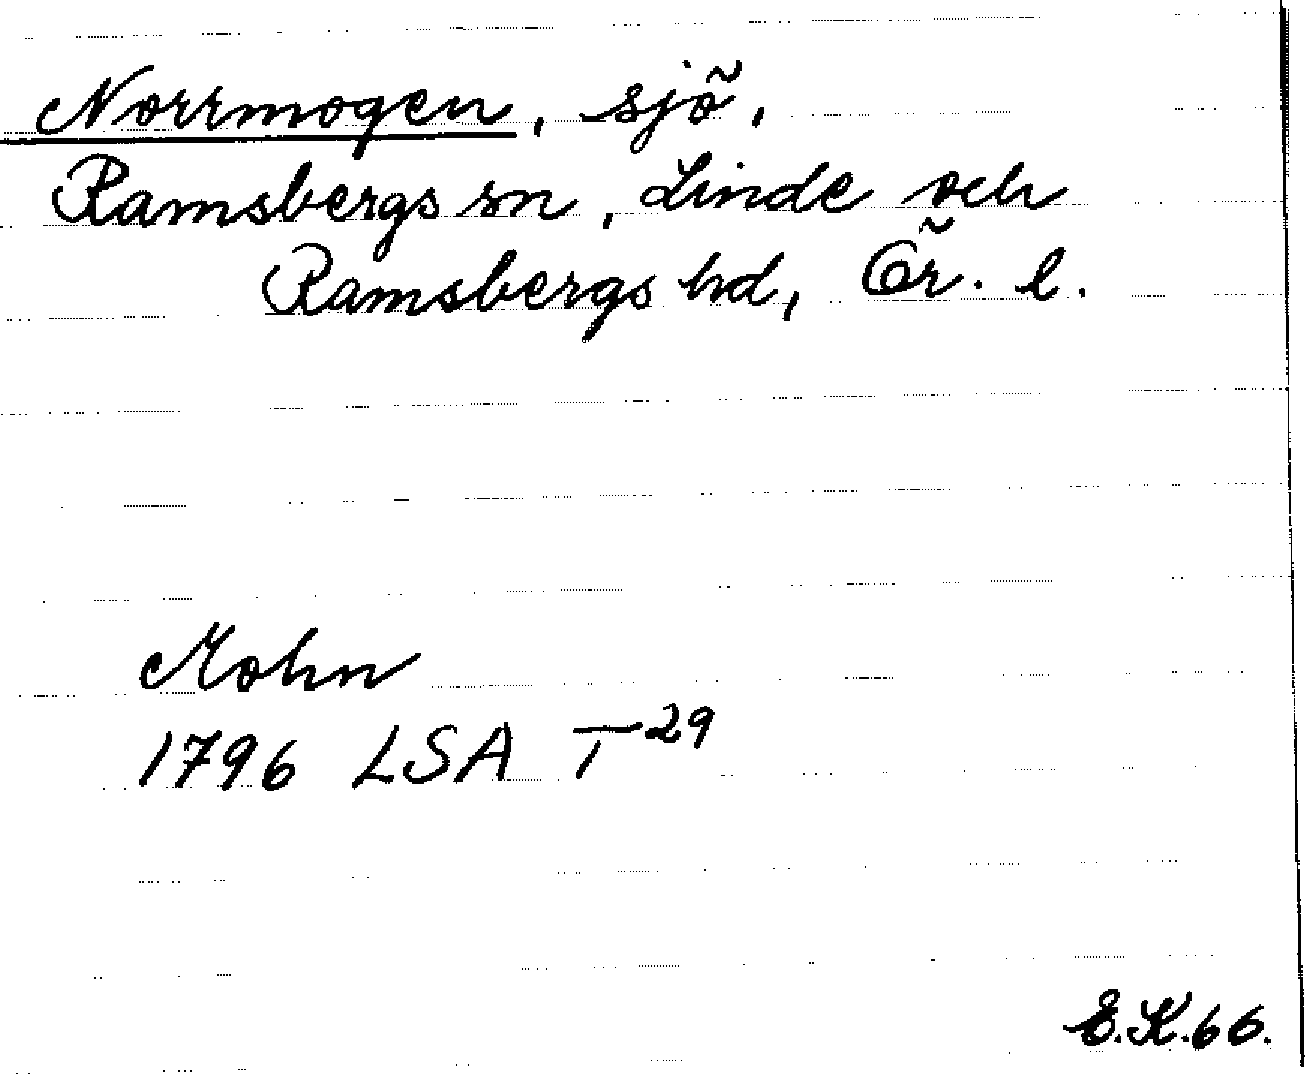 Norrmogen, sjö,
Ramsbergs sn, Linde och
Ramsbergs hd, Ör. l.
Mohn
1796 LSA T 29
E.K.66.